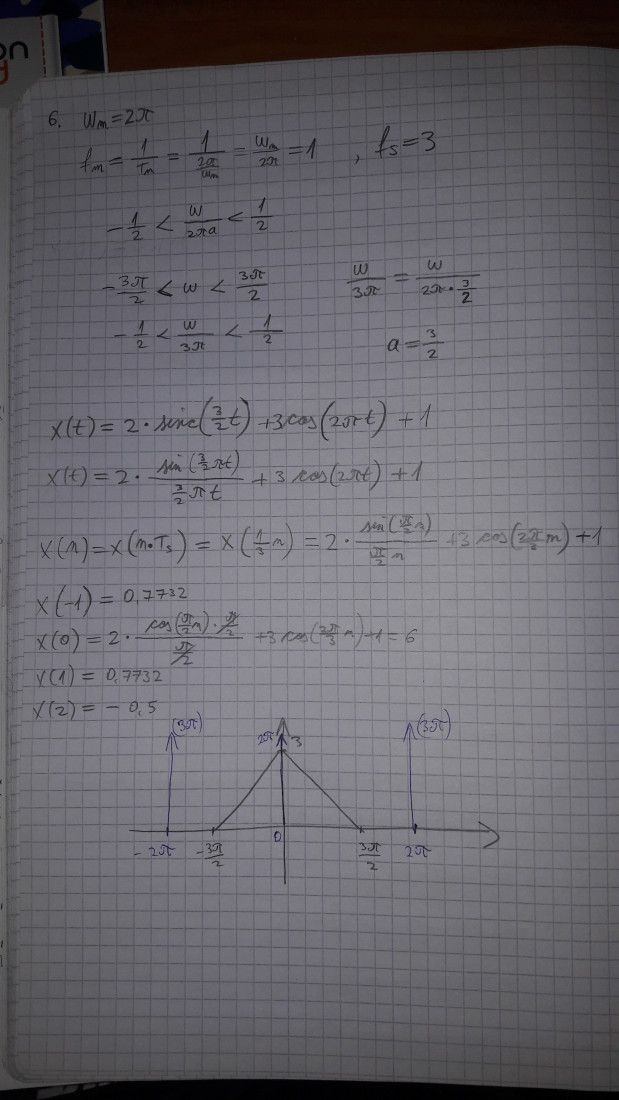 6. ωm=2π
fm = 1/Tm = 1/(2π/ωm) = ωm/2π = 1 , fs=3
-1/2 < ω/2πa < 1/2
-3π/2 < ω < 3π/2 ω/3π = ω/(2π·3/2)
-1/2 < ω/3π < 1/2 a = 3/2
x(t) = 2·sinc(3/2 t) + 3cos(2πt) + 1
x(t) = 2· sin(3/2 πt)/(3/2 πt) + 3 cos(2πt) + 1
x(n) = x(n·Ts) = x(1/3 n) = 2· sin(π/2 n)/(π/2 n) + 3 cos(2π/3 n) + 1
x(-1) = 0,7732
x(0) = 2· cos(π/2 n)·π/2/(π/2) + 3 cos(2π/3 n) + 1 = 6
x(1) = 0,7732
x(2) = - 0,5
(3π) 2π 3 (3π)
-2π -3π/2 0 3π/2 2π